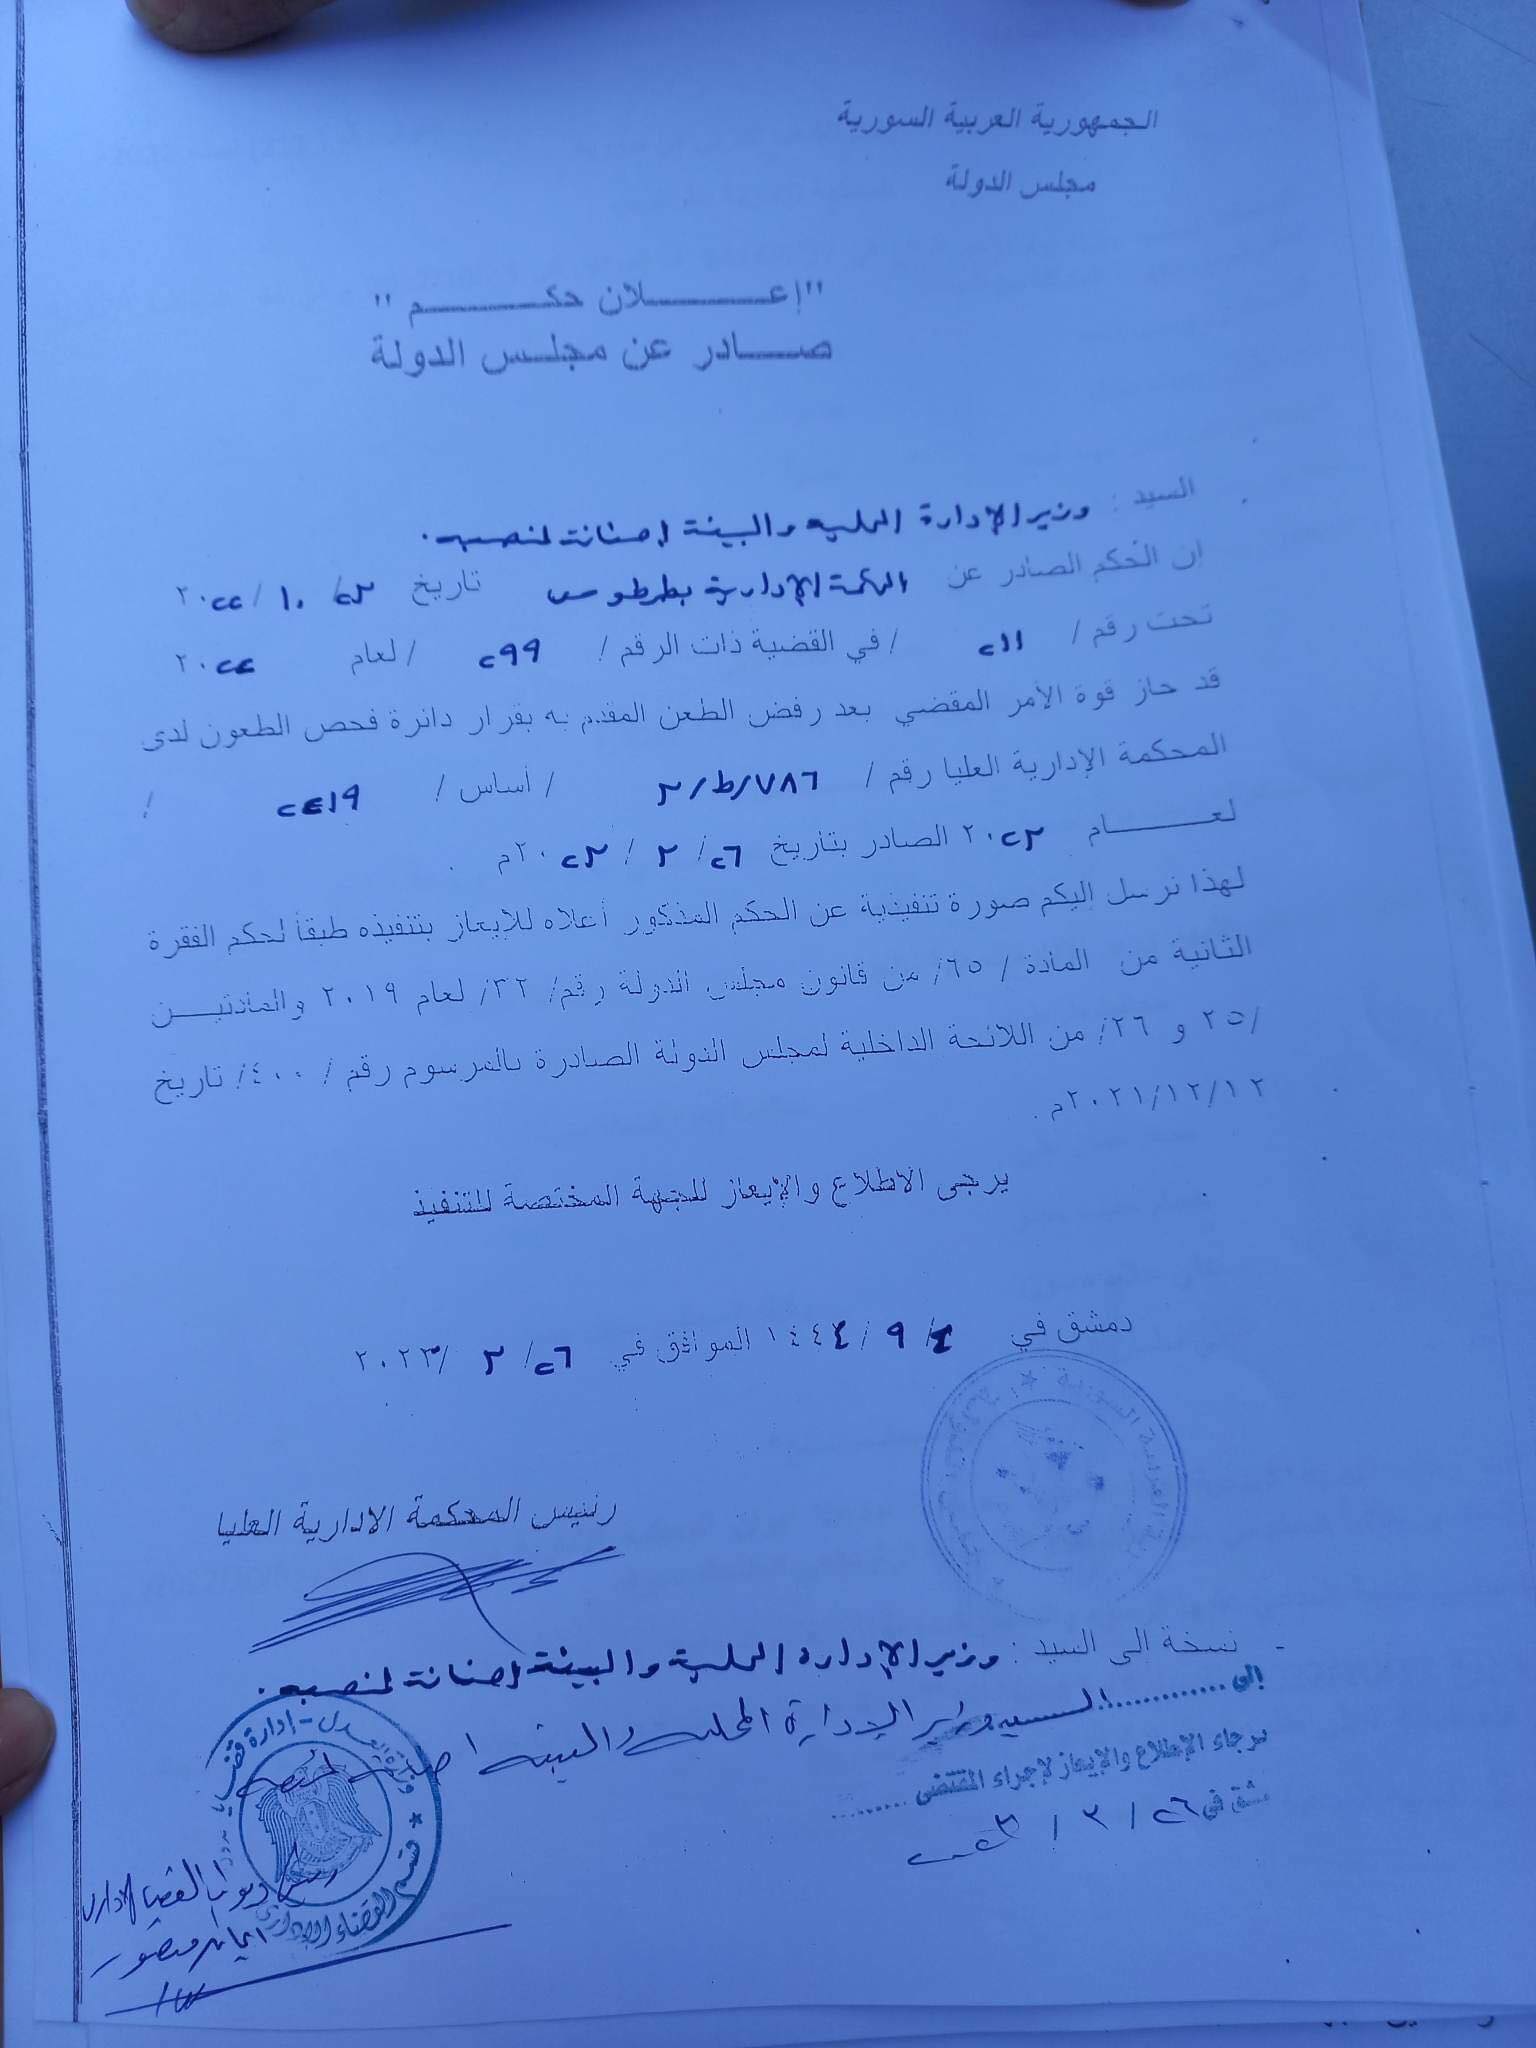 الجمهورية العربية السورية
مجلس الدولة
"إعـــــلان حكـــــم"
صـــادر عن مجلس الدولة
السيد : وزير الإدارة المحلية والبيئة إضافة لمنصبه.
ان الحكم الصادر عن المحكمة الإدارية بطرطوس تاريخ ٢٣/ ١٠/ ٢٠٢٢
تحت رقم / ٢١١ / في القضية ذات الرقم / ٢٩٩ / لعام ٢٠٢٢
قد حاز قوة الأمر المقضي بعد رفض الطعن المقدم به بقرار دائرة فحص الطعون لدى
المحكمة الإدارية العليا رقم / ٧٨٦/ط/٣ / أساس / ٢٤١٩ /
لعـــــام ٢٠٢٣ الصادر بتاريخ ٢٦/ ٣ / ٢٠٢٣م .
لهذا نرسل إليكم صورة تنفيذية عن الحكم المذكور أعلاه للإيعاز بتنفيذه طبقاً لحكم الفقرة
الثانية من المادة / ٦٥/ من قانون مجلس الدولة رقم/ ٣٢/ لعام ٢٠١٩ والمادتيـــن
/٢٥ و ٢٦/ من اللائحة الداخلية لمجلس الدولة الصادرة بالمرسوم رقم / ٤٠٠/ تاريخ
٢٠٢١/١٢/١٢م .
يرجى الاطلاع والإيعاز للجهة المختصة للتنفيذ
دمشق في ٤/ ٩ /١٤٤٤ الموافق في ٢٦/ ٣ /٢٠٢٣
رئيس المحكمة الادارية العليا
- نسخة الى السيد : وزير الإدارة المحلية والبيئة إضافة لمنصبه.
إلى ........... السيد وزير الإدارة المحلية والبيئة إضافة لمنصبه
برجاء الإطلاع والإيعاز لإجراء المقتضى .........
دمشق في ٢٦ / ٣ / ٢٠٢٣
وزارة العدل - إدارة قضايا
قسم القضاء الإداري
رئيس ديوان القضاء الإداري
منصور